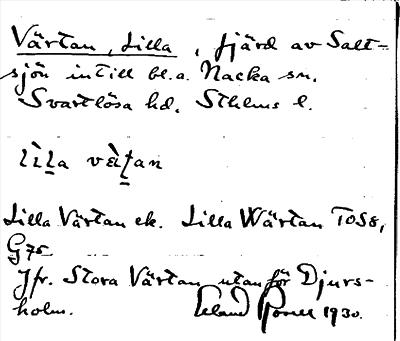 Värtan, Lilla, fjärd av Salt-
sjön intill bl.a. Nacka sn.
Svartlösa hd. Sthlms l.
lìla vàtan
Lilla Värtan ek. Lilla Wärtan TOS8,
G75
Jfr. Stora Värtan utanför Djurs-
holm. 1930.